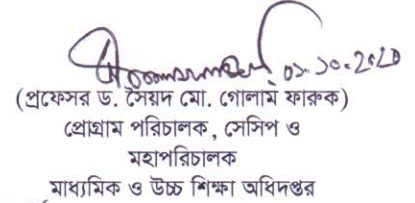 ০১.১০.২০২০
(প্রফেসর ড. সৈয়দ মো. গোলাম ফারুক)
প্রোগ্রাম পরিচালক, সেসিপ ও
মহাপরিচালক
মাধ্যমিক ও উচ্চ শিক্ষা অধিদপ্তর